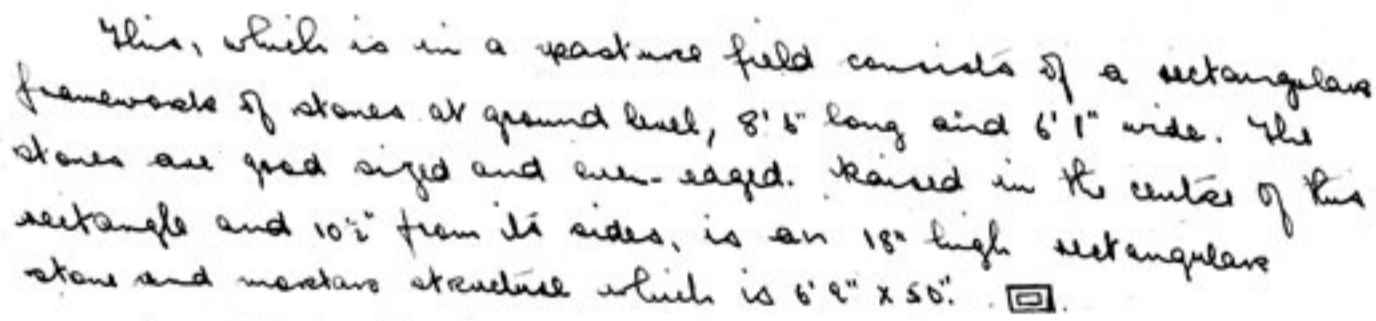 This, which is in a pasture field consists of a rectangular
framework of stones at ground level, 8' 6" long and 6' 1" wide. The
stones are good sized and even-edged. Raised in the centre of this
rectangle and 10½" from its sides, is an 18" high rectangular
stone and mortar structure which is 6' 9" x 50".